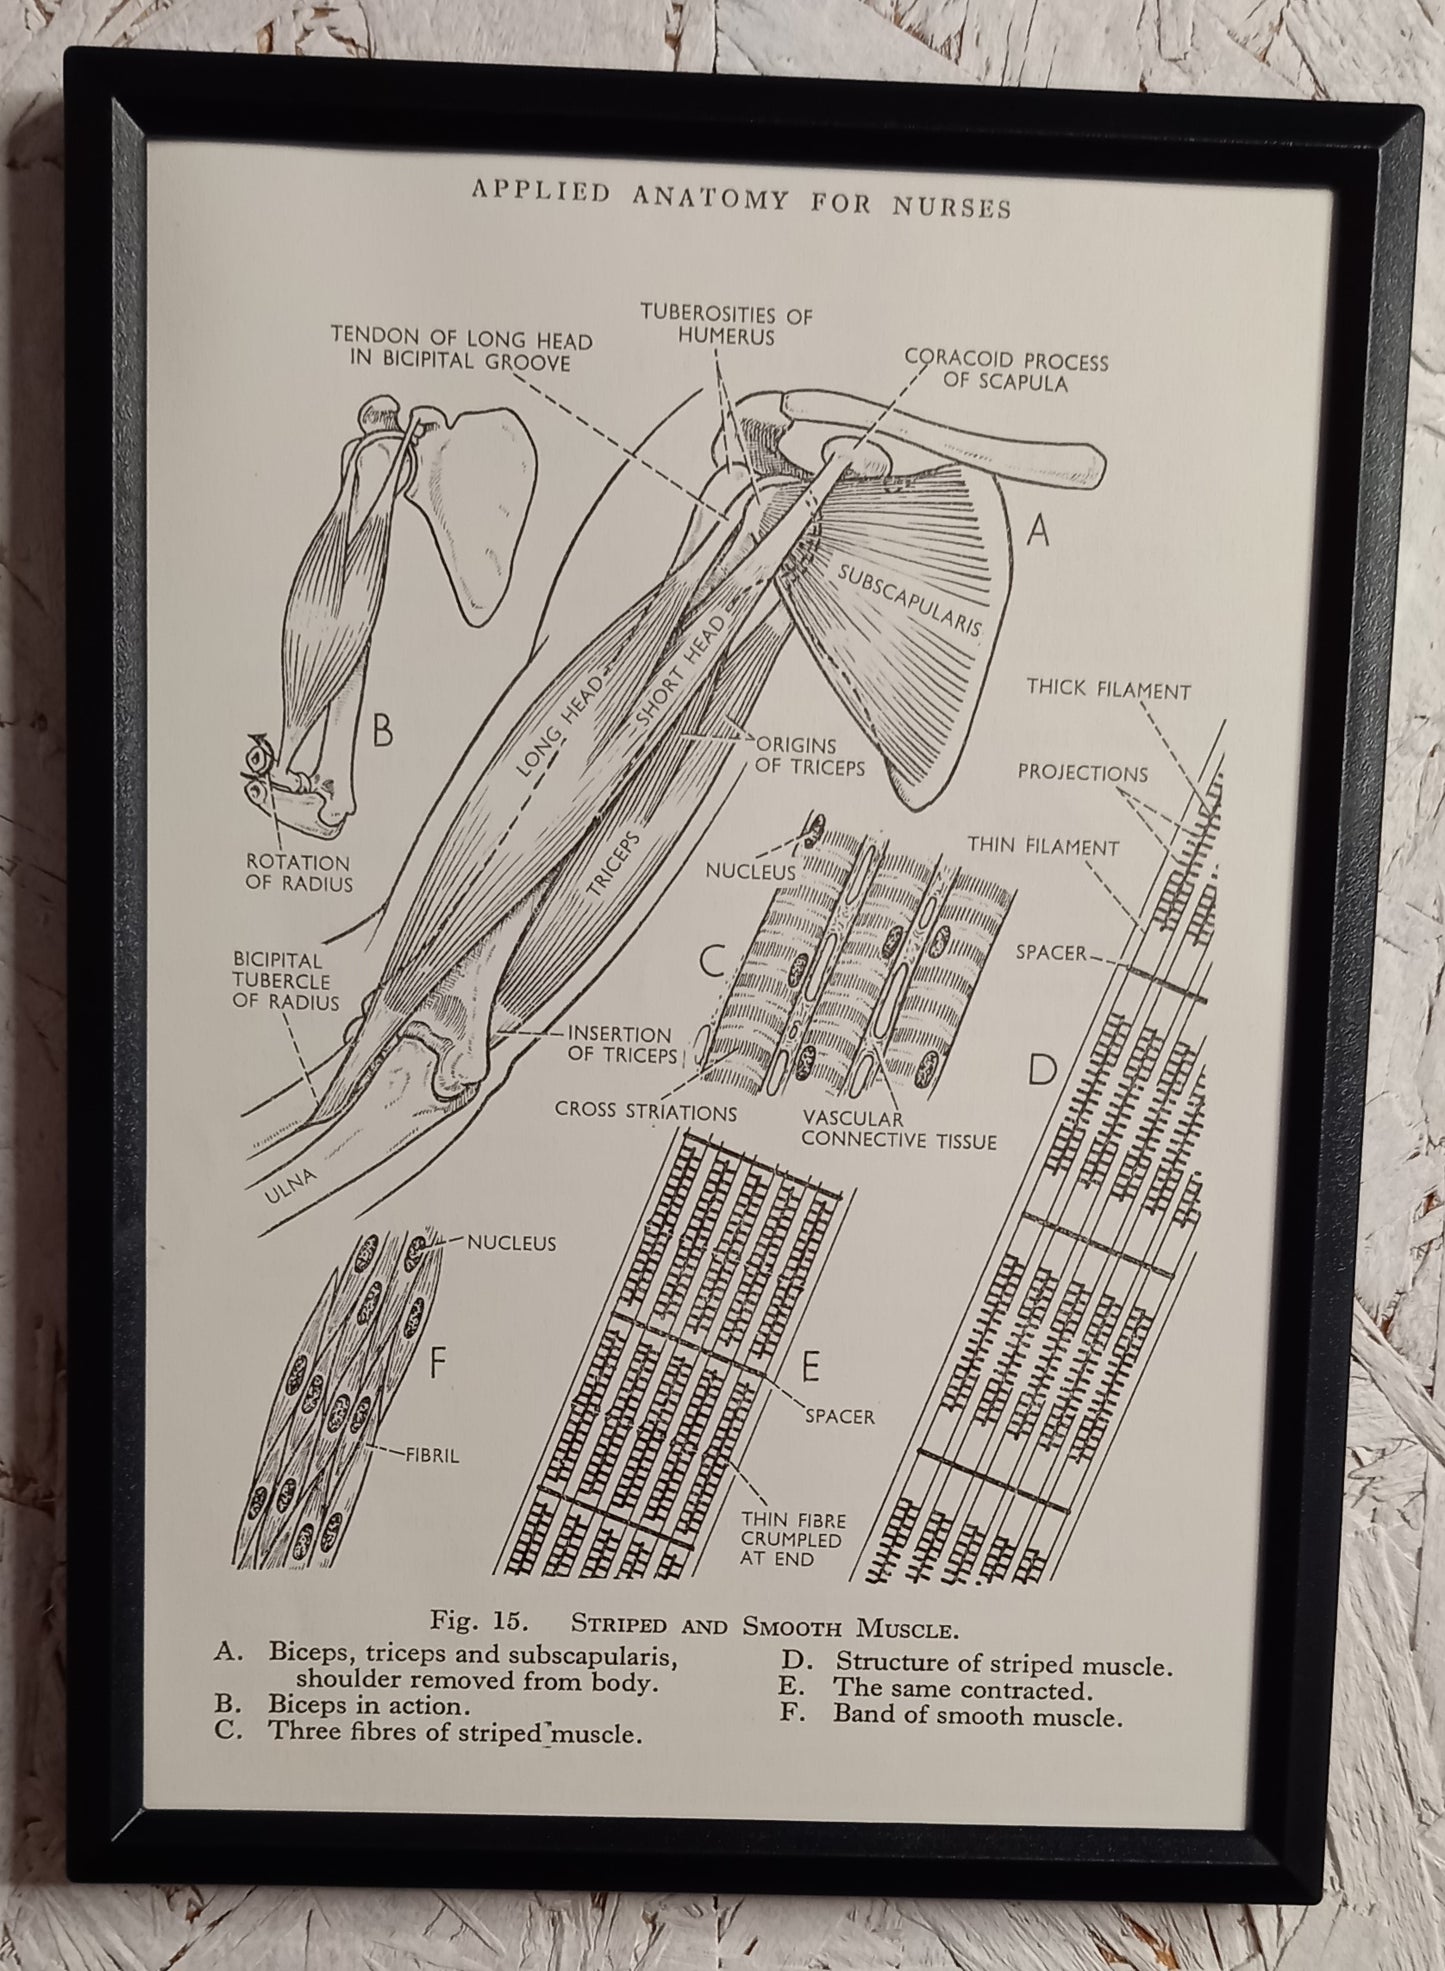 APPLIED ANATOMY FOR NURSES
TUBEROSITIES OF
HUMERUS
TENDON OF LONG HEAD
IN BICIPITAL GROOVE
CORACOID PROCESS
OF SCAPULA
A
SUBSCAPULARIS
LONG HEAD
SHORT HEAD
B
ORIGINS
OF TRICEPS
TRICEPS
THICK FILAMENT
PROJECTIONS
THIN FILAMENT
SPACER
ROTATION
OF RADIUS
NUCLEUS
C
BICIPITAL
TUBERCLE
OF RADIUS
INSERTION
OF TRICEPS
CROSS STRIATIONS
VASCULAR
CONNECTIVE TISSUE
D
ULNA
NUCLEUS
F
FIBRIL
E
SPACER
THIN FIBRE
CRUMPLED
AT END
Fig. 15. STRIPED AND SMOOTH MUSCLE.
A. Biceps, triceps and subscapularis,
shoulder removed from body.
B. Biceps in action.
C. Three fibres of striped muscle.
D. Structure of striped muscle.
E. The same contracted.
F. Band of smooth muscle.